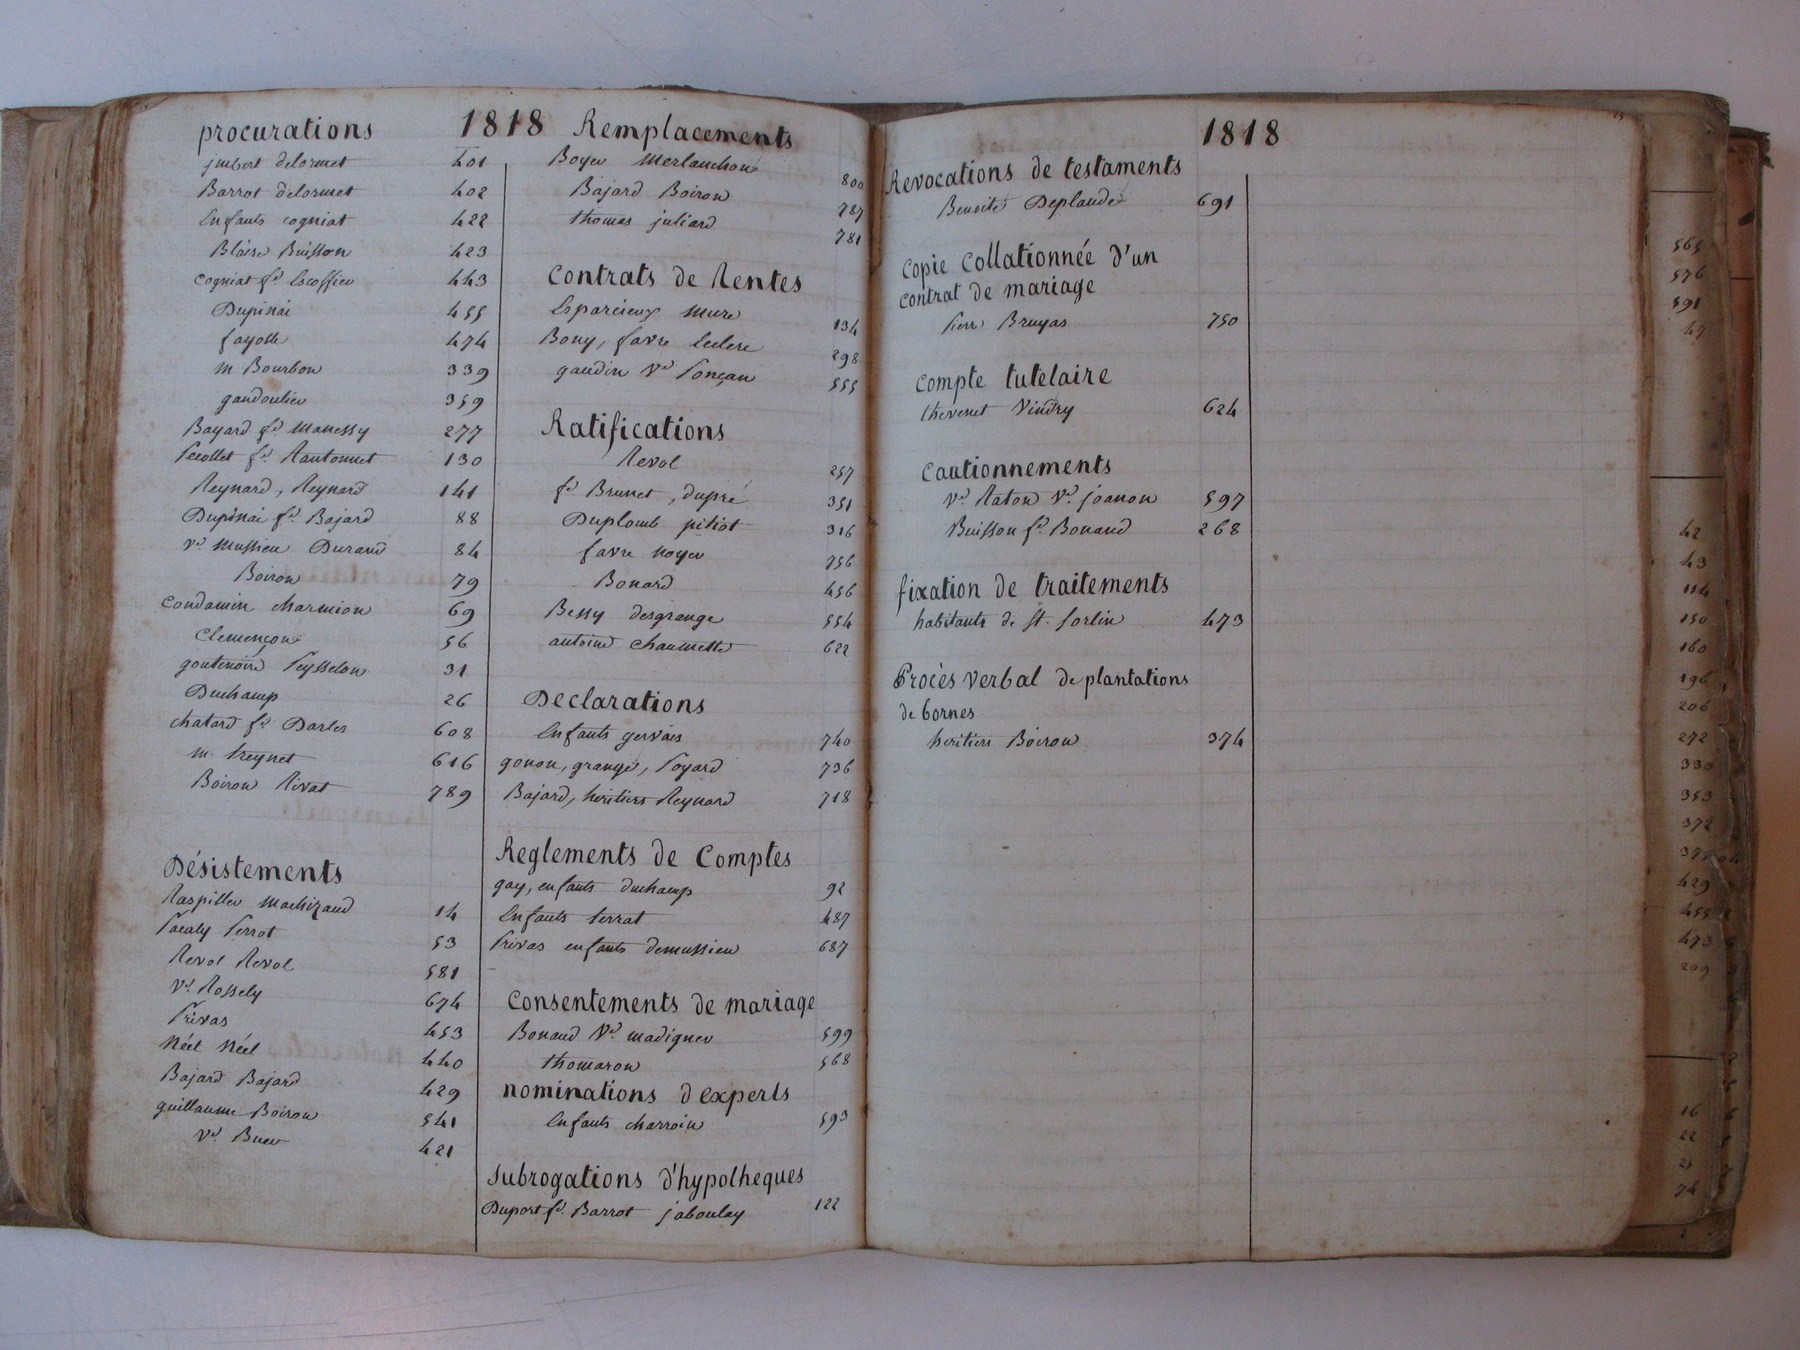 1818
procurations
jmbert delormet 401
Barrot delormet 402
Enfants cogniat 422
Blaise Buisson 423
cogniat fe. Escoffier 443
Dupinai 455
fayolle 474
m Bourbon 339
gaudoulier 359
Bayard fe. Manessy 277
Pecollet fe. Rantonnet 130
Reynard, Reynard 141
Dupinai fe. Bajard 88
Ve. Mussieu Durand 84
Boiron 79
Condamin charmion 69
Clemençon 56
goutenoire Peysselon 31
Duchamp 26
chatard fe. Darles 608
m. treynet 616
Boiron Rivat 789
Désistements
Raspiller Machizaud 14
Pacaly Perrot 53
Revol Revol 581
Ve. Rossely 674
Privas 453
Néel Néel 440
Bajard Bajard 429
guillaume Boiron 541
Ve. Buer 421
Remplacements
Boyer Merlanchon 800
Bajard Boiron 787
thomas juliard 781
Contrats de Rentes
Esparcieux Mure 134
Bony, favre leclerc 298
gaudin Ve. Ponçan 555
Ratifications
Revol 257
fe. Brunet, dupré 351
Duplomb pitiot 316
favre noyer 756
Bonard 456
Bessy desgrange 554
antoine chaumette 622
Declarations
Enfants gervais 740
gonon, grange, Poyard 736
Bajard, heritiers Reynard 718
Reglements de Comptes
gay, enfants duchamp 92
Enfants terrat 487
Privas enfants demussieu 687
Consentements de mariage
Bonand Ve. madignier 599
thomaron 568
nominations d'experts
Enfants charroin 593
Subrogations d'hypotheques
Duport fe. Barrot jaboulay 122
1818
Revocations de testaments
Benoite Deplaude 691
Copie Collationnée d'un
contrat de mariage
Pierre Bruyas 750
Compte tutelaire
thevenet Vindry 624
Cautionnements
Ve. Raton Ve. joanon 597
Buisson fe. Bonand 268
fixation de traitements
habitants de St. Sorlin 473
Procès verbal de plantations
de bornes
heritiers Boiron 374
565
576
591
42
43
114
150
160
196
206
272
330
353
372
429
455
473
209
16
22
74